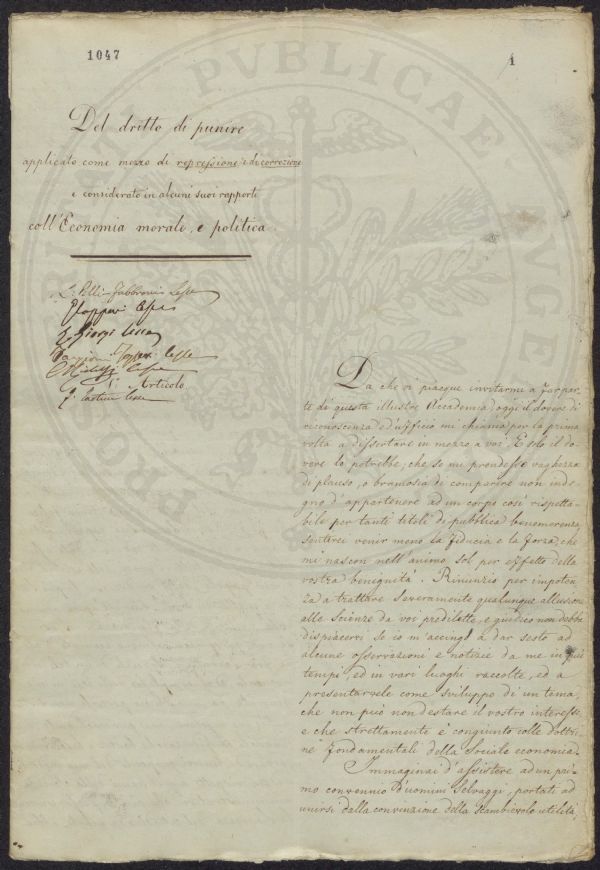 1047
1
Del dritto di punire
applicato come mezzo di repressione e di correzione
e considerato in alcuni suoi rapporti
coll'Economia morale, e politica.
1° Articolo
Da che vi piacque invitarmi a far par-
te di questa illustre Accademia, oggi il dovere di
riconoscenza ed'ufficio mi chiama per la prima
volta a dissertare in mezzo a voi. E solo il do-
vere lo potrebbe; che se mi prendesse vaghezza
di plauso, o bramosia di comparire non inde-
gno d'appartenere ad un corpo così rispetta-
bile per tanti titoli di pubblica benemerenza,
sentirei venir meno la fiducia e la forza, che
mi nascon nell'animo sol per effetto della
vostra benignità. Rinunzio per impoten-
za a trattare severamente qualunque allusione
alle Scienze da voi predilette, e giudico non debba
dispiacervi se io m'accingo a dar sesto ad
alcune osservazioni e notizie da me in più
tempi, ed in vari luoghi raccolte, ed a
presentarvele come sviluppo di un tema,
che non può non destare il vostro interesse,
e che strettamente è congiunto colle dottri-
ne fondamentali della Sociale economia.
Immaginai d'assistere ad un pri-
mo convennio d'uomini selvaggi, portati ad
unirsi dalla convinzione della scambievole utilità
PVBLICAE